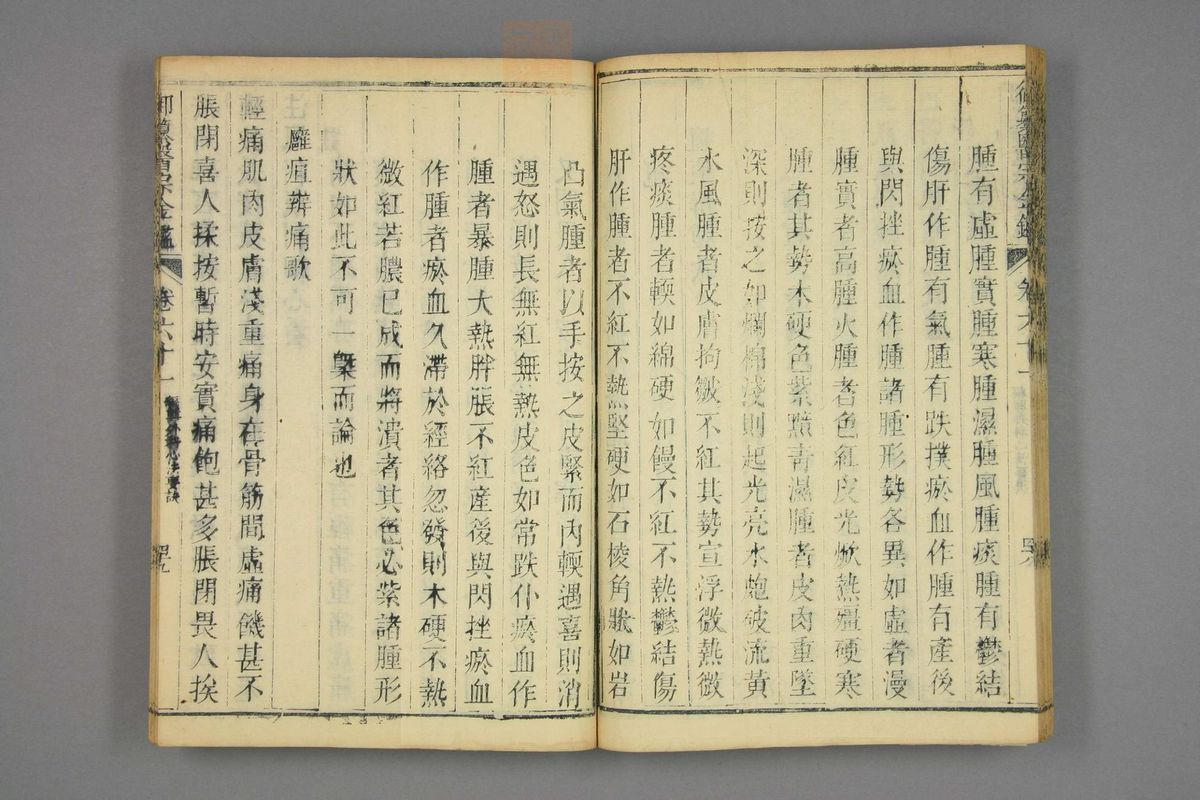 腫有虛腫實腫寒腫濕腫風腫痰腫有鬱結
傷肝作腫有氣腫有跌撲瘀血作腫有產後
與閃挫瘀血作腫諸腫形勢各異如虛者漫
腫實者高腫火腫者色紅皮光焮熱殭硬寒
腫者其勢木硬色紫黯青濕腫者皮肉重墜
深則按之如爛棉淺則起光亮水皰破流黃
水風腫者皮膚拘皺不紅其勢宣浮微熱微
疼痰腫者輭如綿硬如饅不紅不熱鬱結傷
肝作腫者不紅不熱堅硬如石棱角狀如岩
凸氣腫者以手按之皮緊而內輭遇喜則消
遇怒則長無紅無熱皮色如常跌仆瘀血作
腫者暴腫大熱胖脹不紅產後與閃挫瘀血
作腫者瘀血久滯於經絡忽發則木硬不熱
微紅若膿已成而將潰者其色必紫諸腫形
狀如此不可一槩而論也
癰疽辨痛歌
輕痛肌肉皮膚淺重痛身在骨筋間虛痛饑甚不
脹閉喜人揉按暫時安實痛飽甚多脹閉畏人挨
御纂醫宗金鑑 卷六十一 編輯外科心法要訣